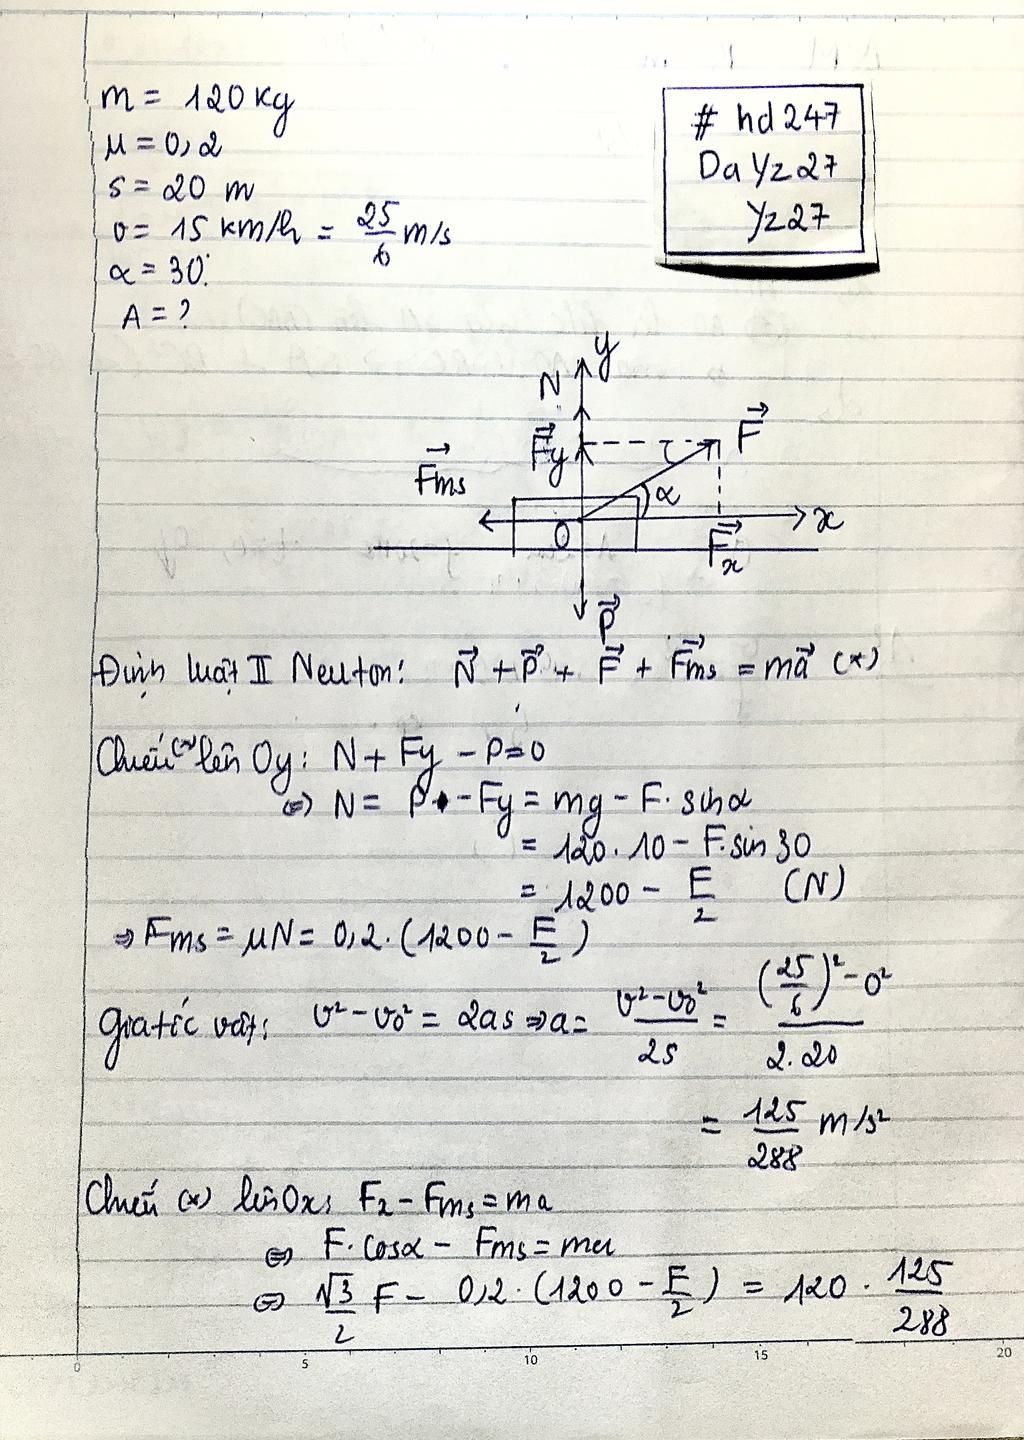 m = 120 kg
μ = 0,2
s = 20 m
v = 15 km/h = 25/6 m/s
α = 30°
A = ?
# hd 247
Da Yz27
Yz27
y
N
F⃗y
F⃗
F⃗ms
α
O
x
F⃗x
P⃗
Định luật II Neuton: N⃗ + P⃗ + F⃗ + F⃗ms = ma⃗ (*)
Chiếu (*) lên Oy: N + Fy - P = 0
⇔ N = P - Fy = mg - F. sinα
= 120. 10 - F. sin 30
= 1200 - F/2 (N)
⇒ Fms = μN = 0,2. (1200 - F/2)
Gia tốc vật: v² - v₀² = 2as ⇒ a = (v² - v₀²)/2s = ((25/6)² - 0²)/2.20
= 125/288 m/s²
Chiếu (*) lên Ox: Fx - Fms = ma
⇔ F. cosα - Fms = ma
⇔ √3/2 F - 0,2. (1200 - F/2) = 120 . 125/288
0 5 10 15 20